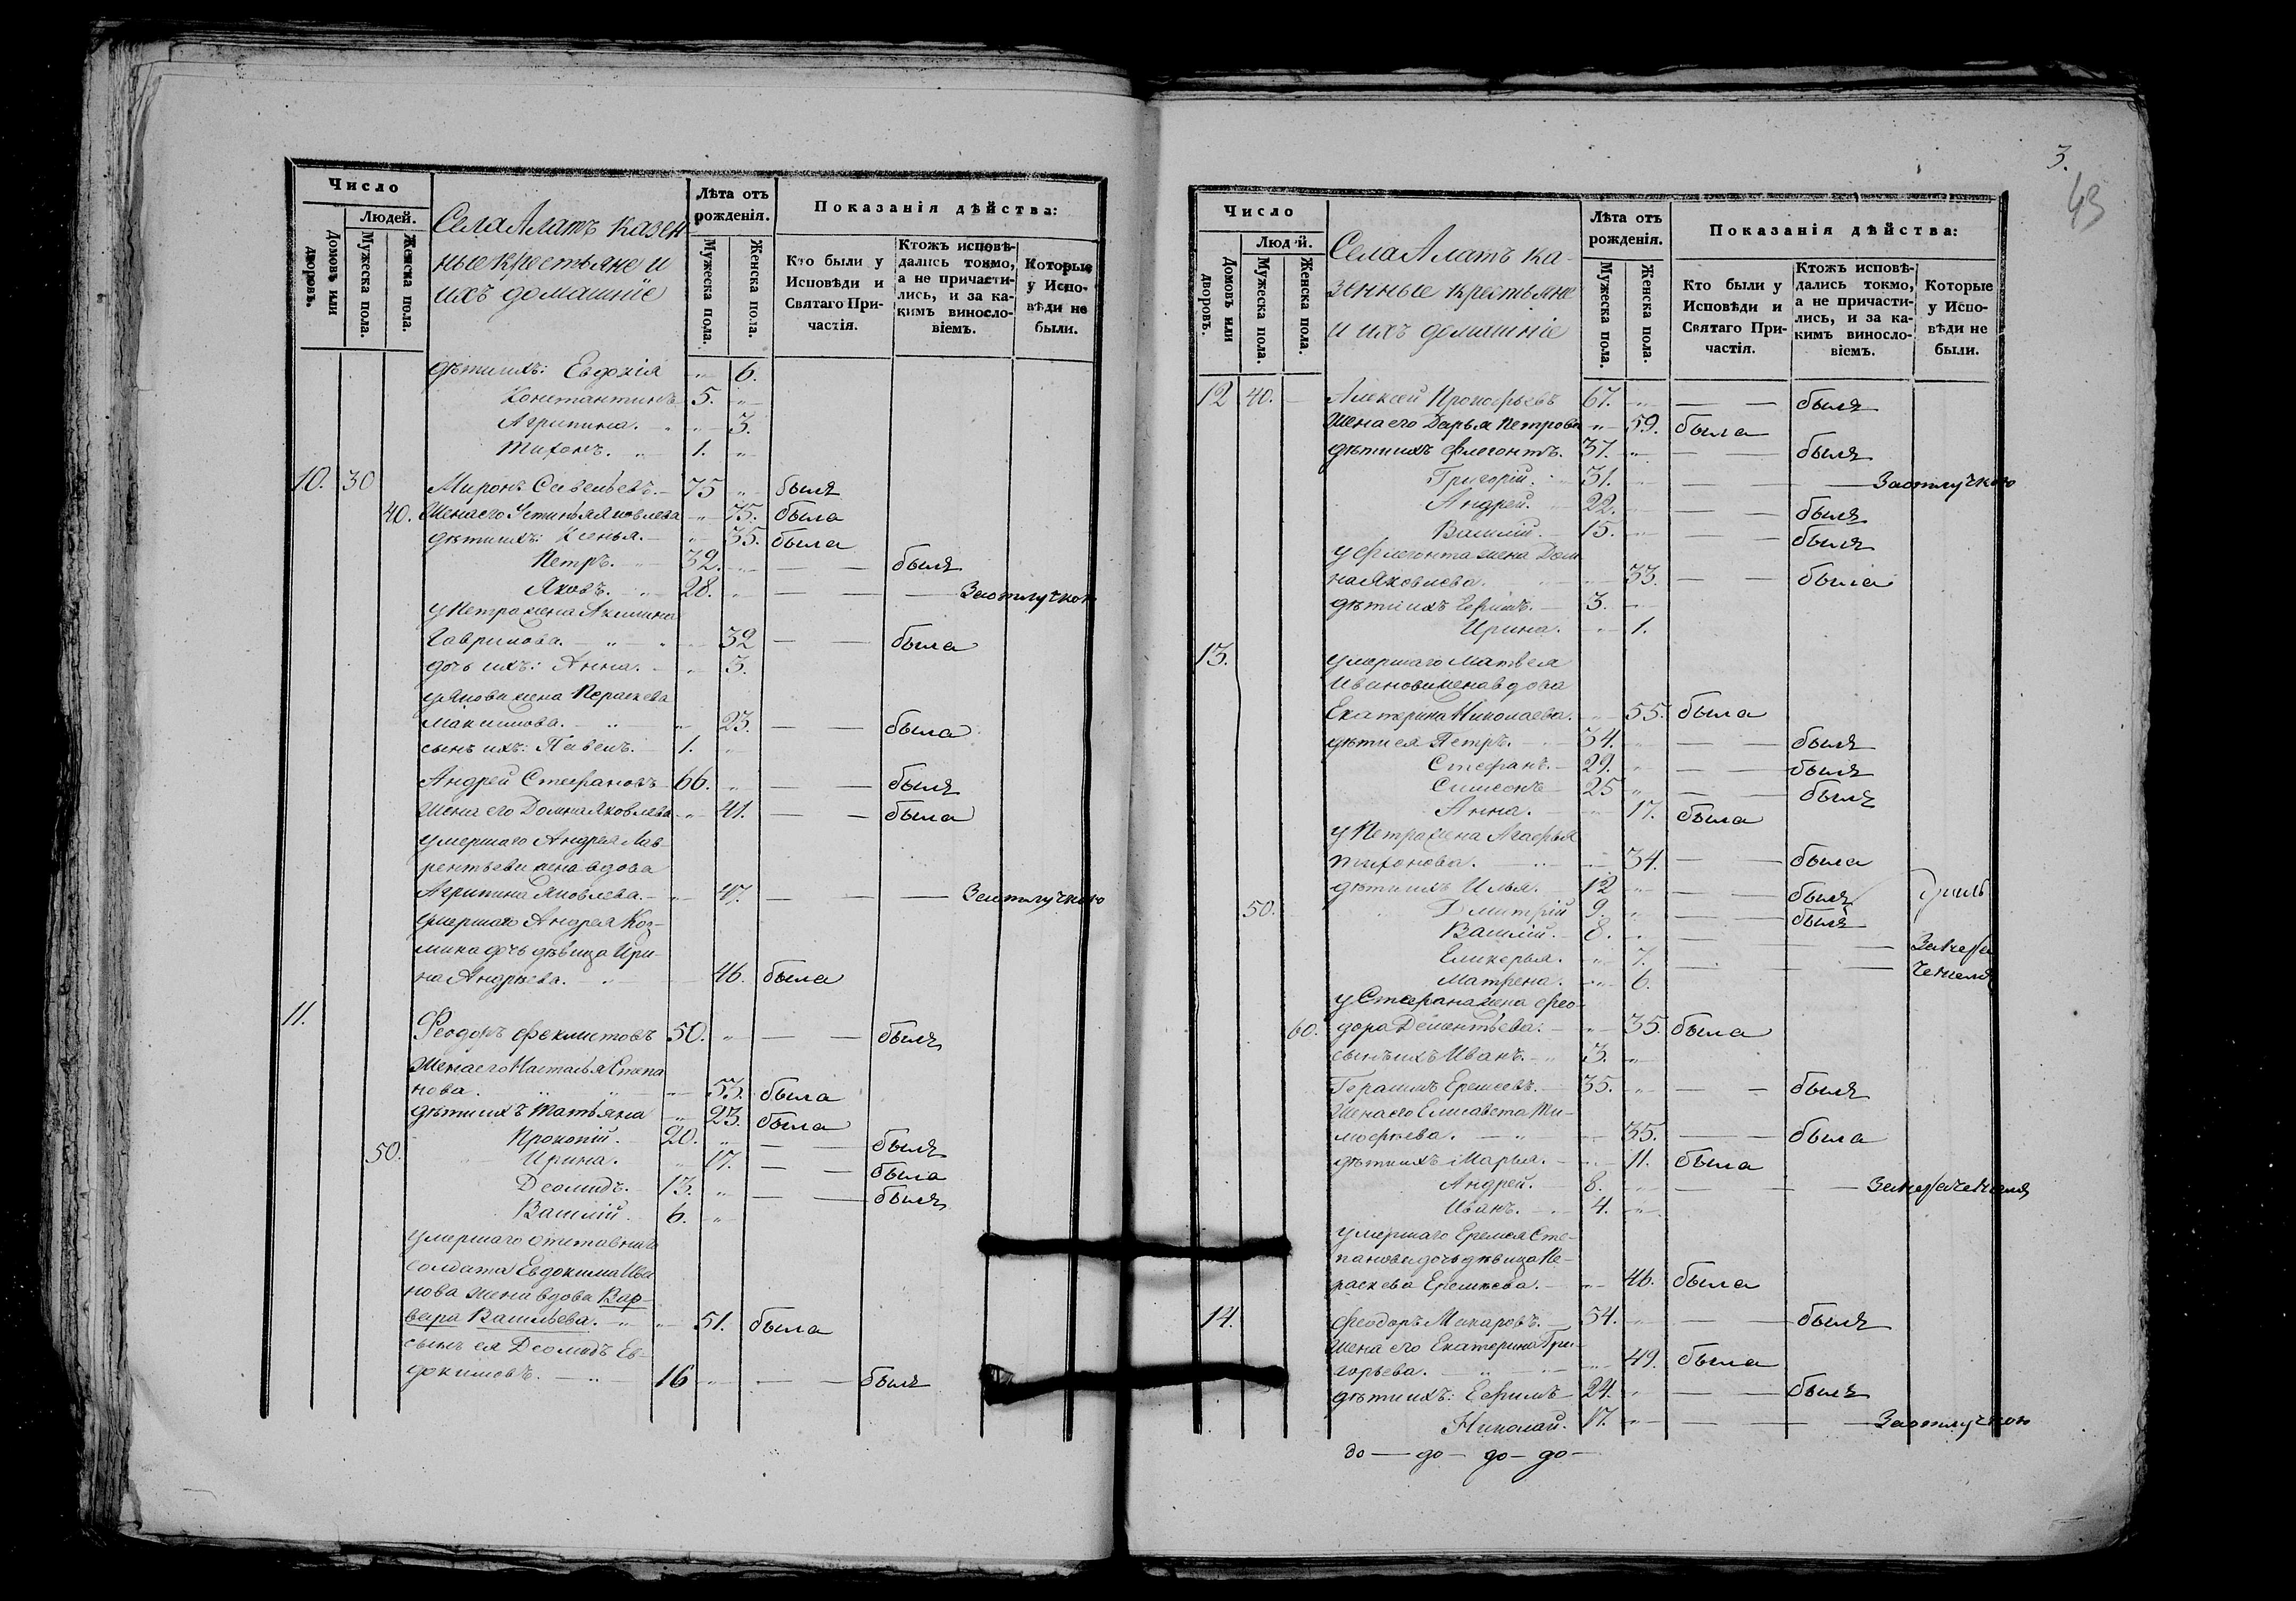 Число
Людей.
Домовъ или дворовъ.
Мужеска пола.
Женска пола.
Села Алатъ казен
ные крестьяне и
ихъ домашніе
Лѣта отъ рожденія.
Мужеска пола.
Женска пола.
Показанія дѣйства:
Кто были у Исповѣди и Святаго Причастія.
Ктожъ исповѣдались токмо, а не причастились, и за какимъ винословіемъ.
Которые у Исповѣди не были.
дѣти ихъ: Евдокія 6.
Константинъ 5.
Агрипина. 3.
Тихонъ. 1.
10. 30 Миронъ Савельевъ. 75 былъ
40. Жена его Устинья Яковлева 75. была
дѣти ихъ: Ксенья. 35. была
Петръ. 32. былъ
Яковъ. 28. За отлучкою
у Петра жена Акилина
Гаврилова. 32 была
дочь ихъ: Анна. 3.
у Якова жена Параскева
Максимова. 23. была
сынъ ихъ: Павелъ. 1.
Андрей Стефановъ 66. былъ
Жена его Домна Яковлева 41. была
умершаго Андрея Лав-
рентьева жена вдова
Агрипина Яковлева. 47. За отлучкою
Умершаго Андрея Коз-
мина дочь дѣвица Ири-
на Андреева. 46. была
11. Феодоръ Феклистовъ 50. былъ
Жена его Настасья Степа
нова. 53. была
дѣти ихъ Татьяна 23. была
Прокопій. 20. былъ
50. Ирина. 17. была
Деомидъ. 13. былъ
Василій. 6.
умершаго отставнаго
солдата Евдокима Ива
нова жена вдова Вар-
вара Васильева. 51. была
сынъ ея Деомидъ Ев-
докимовъ. 16 былъ
3.
43
Число
Людей.
Домовъ или дворовъ.
Мужеска пола.
Женска пола.
Села Алатъ ка-
зенные крестьяне
и ихъ домашніе
Лѣта отъ рожденія.
Мужеска пола.
Женска пола.
Показанія дѣйства:
Кто были у Исповѣди и Святаго Причастія.
Ктожъ исповѣдались токмо, а не причастились, и за какимъ винословіемъ.
Которые у Исповѣди не были.
12 40. Алексей Прокофьевъ 67. былъ
Жена его Дарья Петрова 59. была
дѣти ихъ Флегонтъ. 37. былъ
Григорій. 31. За отлучкою
Андрей. 22. былъ
Василій. 15. былъ
у Флегонта жена Дом
на Яковлева. 33. была
дѣти ихъ Ефимъ. 3.
Ирина. 1.
13. умершаго Матвея
Иванова жена вдова
Екатерина Николаева. 55. была
дѣти ея Петръ. 34. былъ
Стефанъ. 29. былъ
Симеонъ 25 былъ
Анна. 17. была
у Петра жена Агафья
Тихонова. 34. была
дѣти ихъ Илья. 12 былъ
50. Дмитрій 9. былъ
Василій. 8.
Гликерья. 7.
Матрена. 6.
у Стефана жена Фео-
60. дора Дементьева. 35. была
сынъ ихъ Иванъ. 3.
Герасимъ Еремеевъ. 35. былъ
Жена его Елисавета Ти-
мофеева. 35. была
дѣти ихъ Марья. 11. была
Андрей. 8.
Иванъ. 4.
умершаго Еремея Сте-
панова дочь дѣвица Па-
раскева Еремеева. 46. была
14. Феодоръ Макаровъ. 54. былъ
Жена его Екатерина Гри-
горьева. 49. была
дѣти ихъ: Ефимъ 24. былъ
Николай. 17. За отлучкою
до — до — до — до —